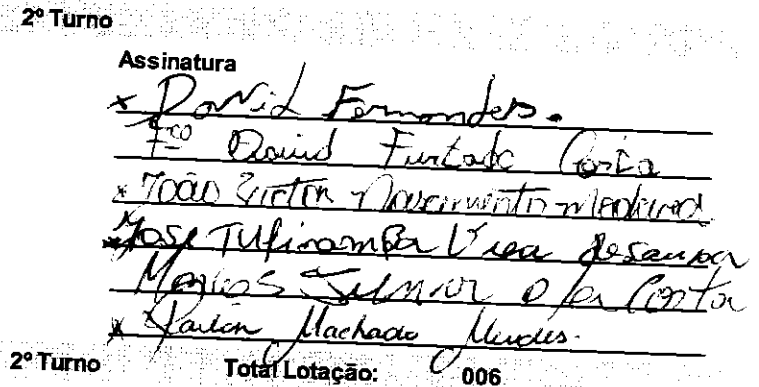 2º Turno
Assinatura
x David Fernandes.
Fco David Furtado Costa
x João Victor Nascimento Medeiros
x José Tupinamba de Sousa
Marcos Junior da Costa
x Machado Mendes.
2º Turno Total Lotação: 006